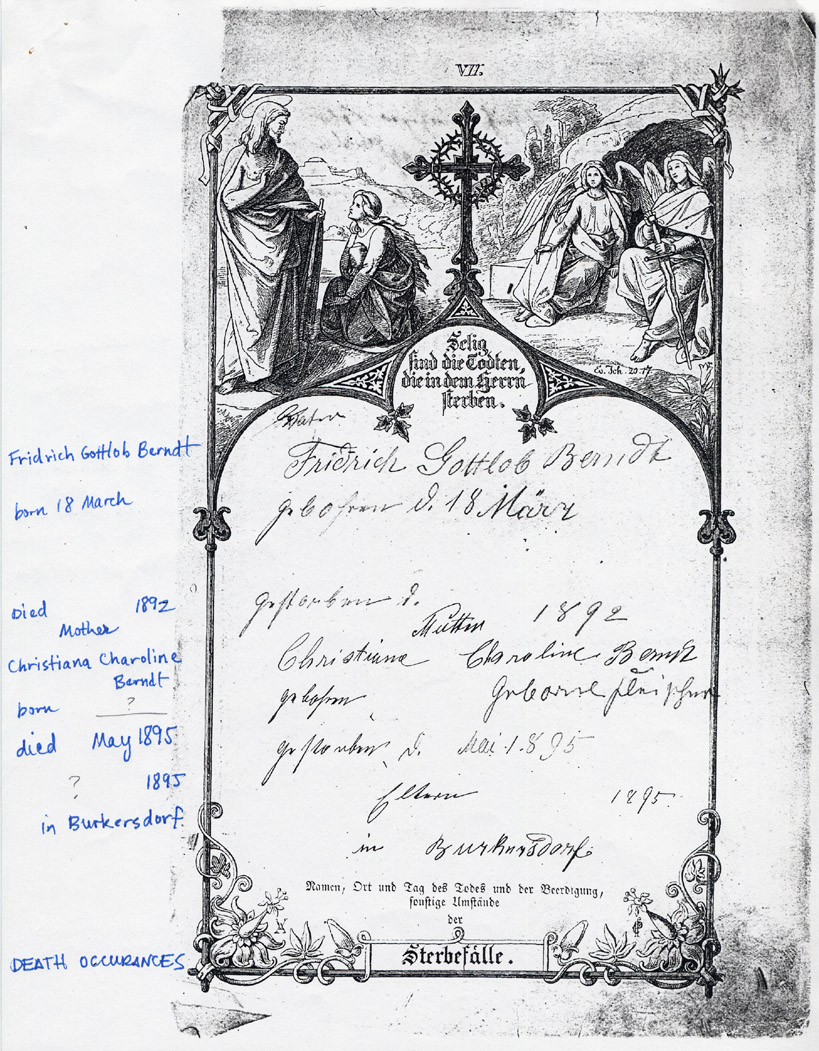 VII.
Selig
sind die Todten,
die in dem Herrn
sterben.
Ev. Joh. 20.17.
Vater
Fridrich Gottlob Berndt
Fridrich Gottlob Berndt
gebohren d. 18 März
born 18 March
gestorben d. 1892
Died 1892
Mutter
Mother
Christiana Charoline Berndt
Christiana Charoline
Berndt
gebohren Geborne Fleischer
born ?
gestorben d. Mai 1.895
died May 1895
Eltern 1895
? 1895
in Burkersdorf.
in Burkersdorf.
Namen, Ort und Tag des Todes und der Beerdigung,
sonstige Umstände
der
Sterbefälle.
DEATH OCCURANCES